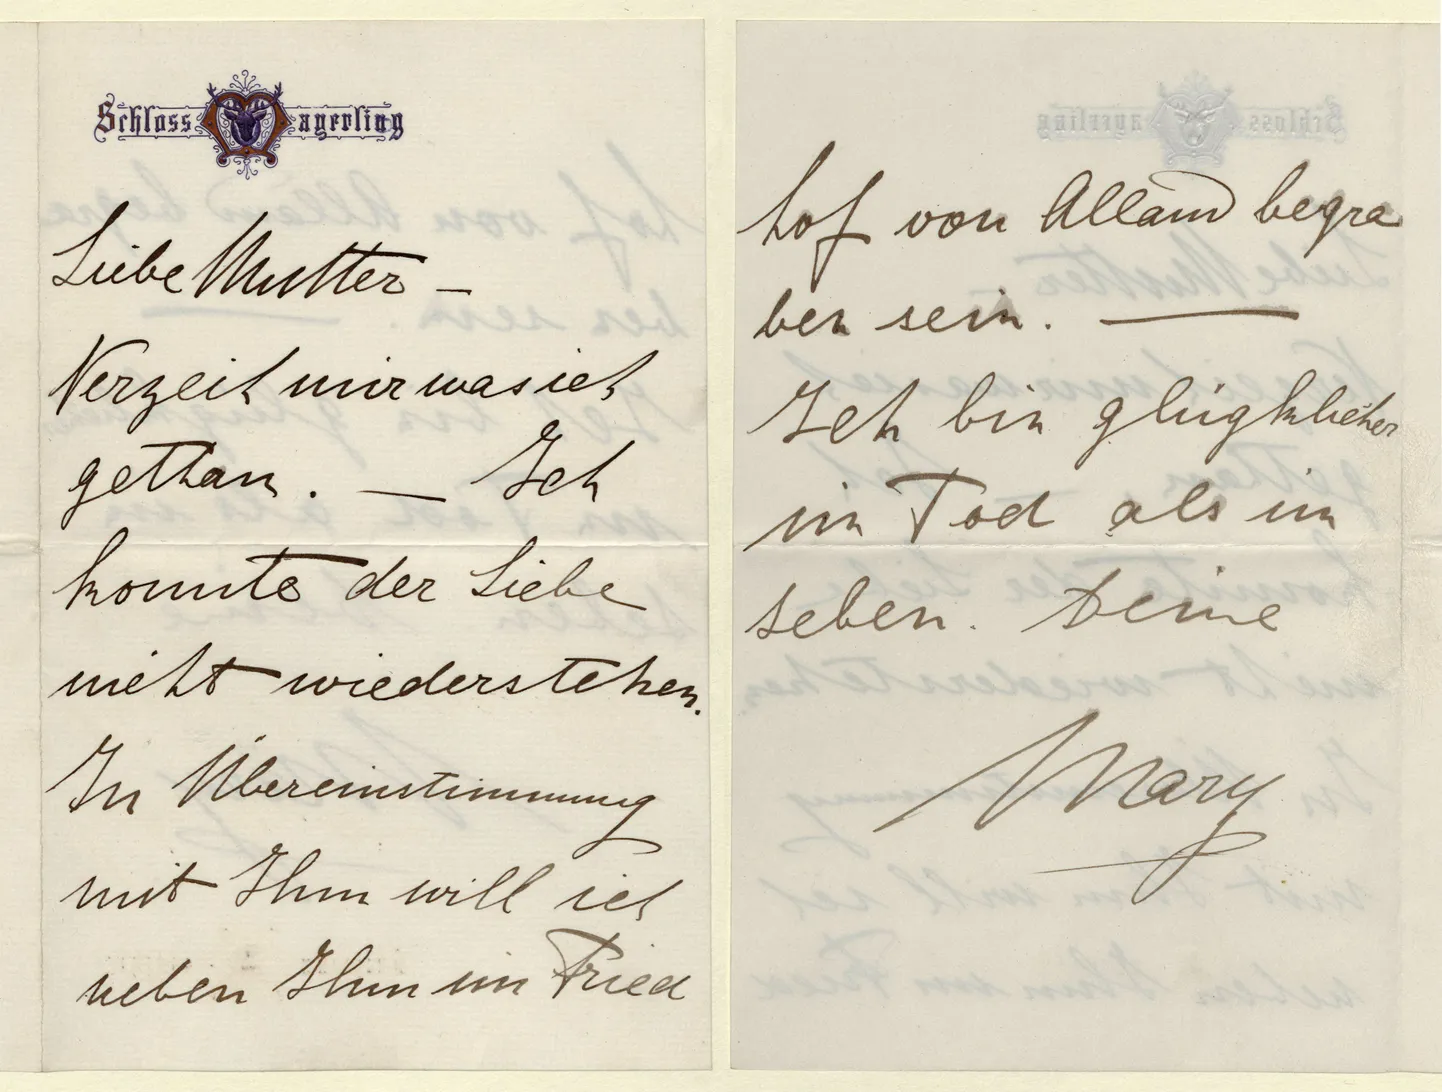 Schloss Mayerling
Liebe Mutter –
Verzeih mir was ich
gethan. — Ich
konnte der Liebe
nicht wiederstehen.
In Übereinstimmung
mit Ihm will ich
neben Ihm im Fried
hof von Alland begra
ben sein. ——
Ich bin glügklicher
im Tod als im
Leben. Deine
Mary